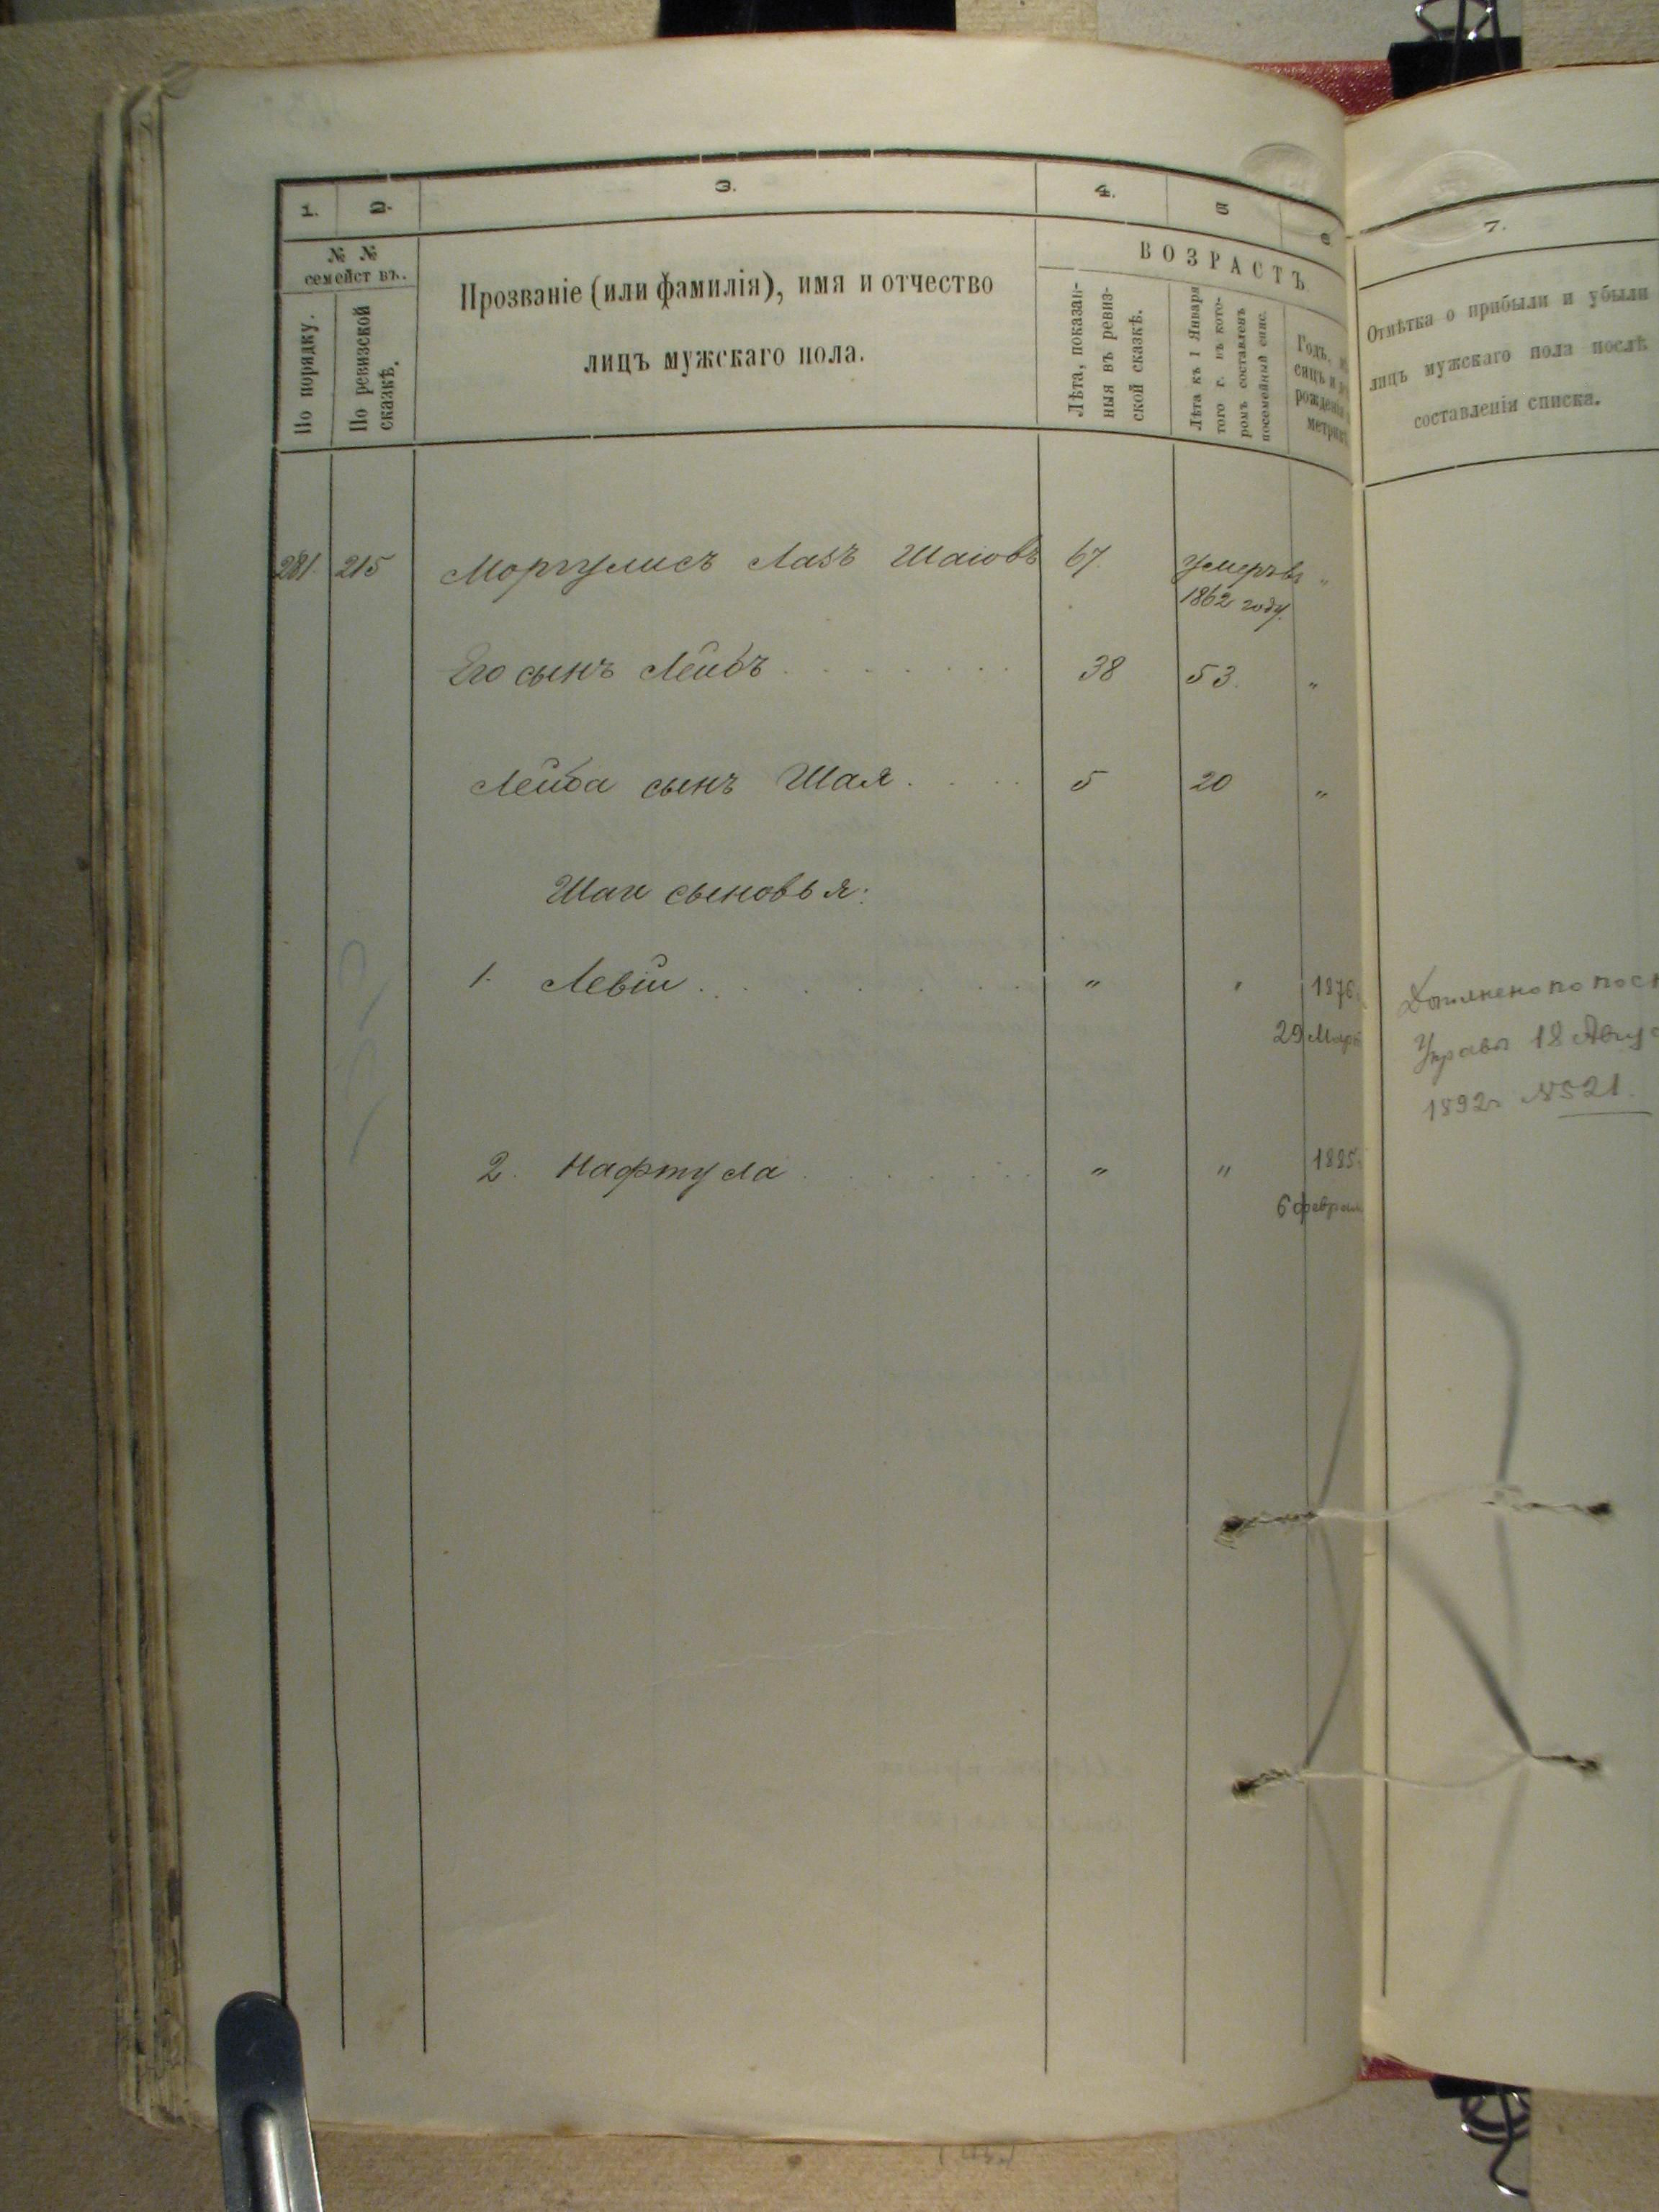 1. 2. 3. 4. 5 6 7.
№ №
семействъ.
По порядку.
По ревизской
сказкѣ.
Прозваніе (или фамилія), имя и отчество
лицъ мужскаго пола.
ВОЗРАСТЪ
Лѣта, показан-
ныя въ ревиз-
ской сказкѣ.
Лѣта къ 1 Января
того г. въ кото-
ромъ составленъ
посемейный спис.
Годъ,
сяцъ и
рожденія
метрик
Отмѣтка о прибыли и убыли
лицъ мужскаго пола послѣ
составленія списка.
281. 215 Моргулисъ Лазъ Шаіовъ 67. Умеръ въ "
1862 году.
Его сынъ Лейбъ 38 53. "
Лейба сынъ Шая 5 20 "
Шаи сыновья:
1. Левій " " 1876
29 Март
Управы 18 Авгус
1892 г №521.
2. Нафтула " " 1885
6 Феврал